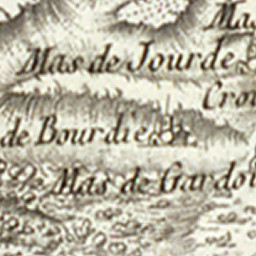 Mas
Mas de Jourde
Crou
de Bourdie
Mas de Gardo